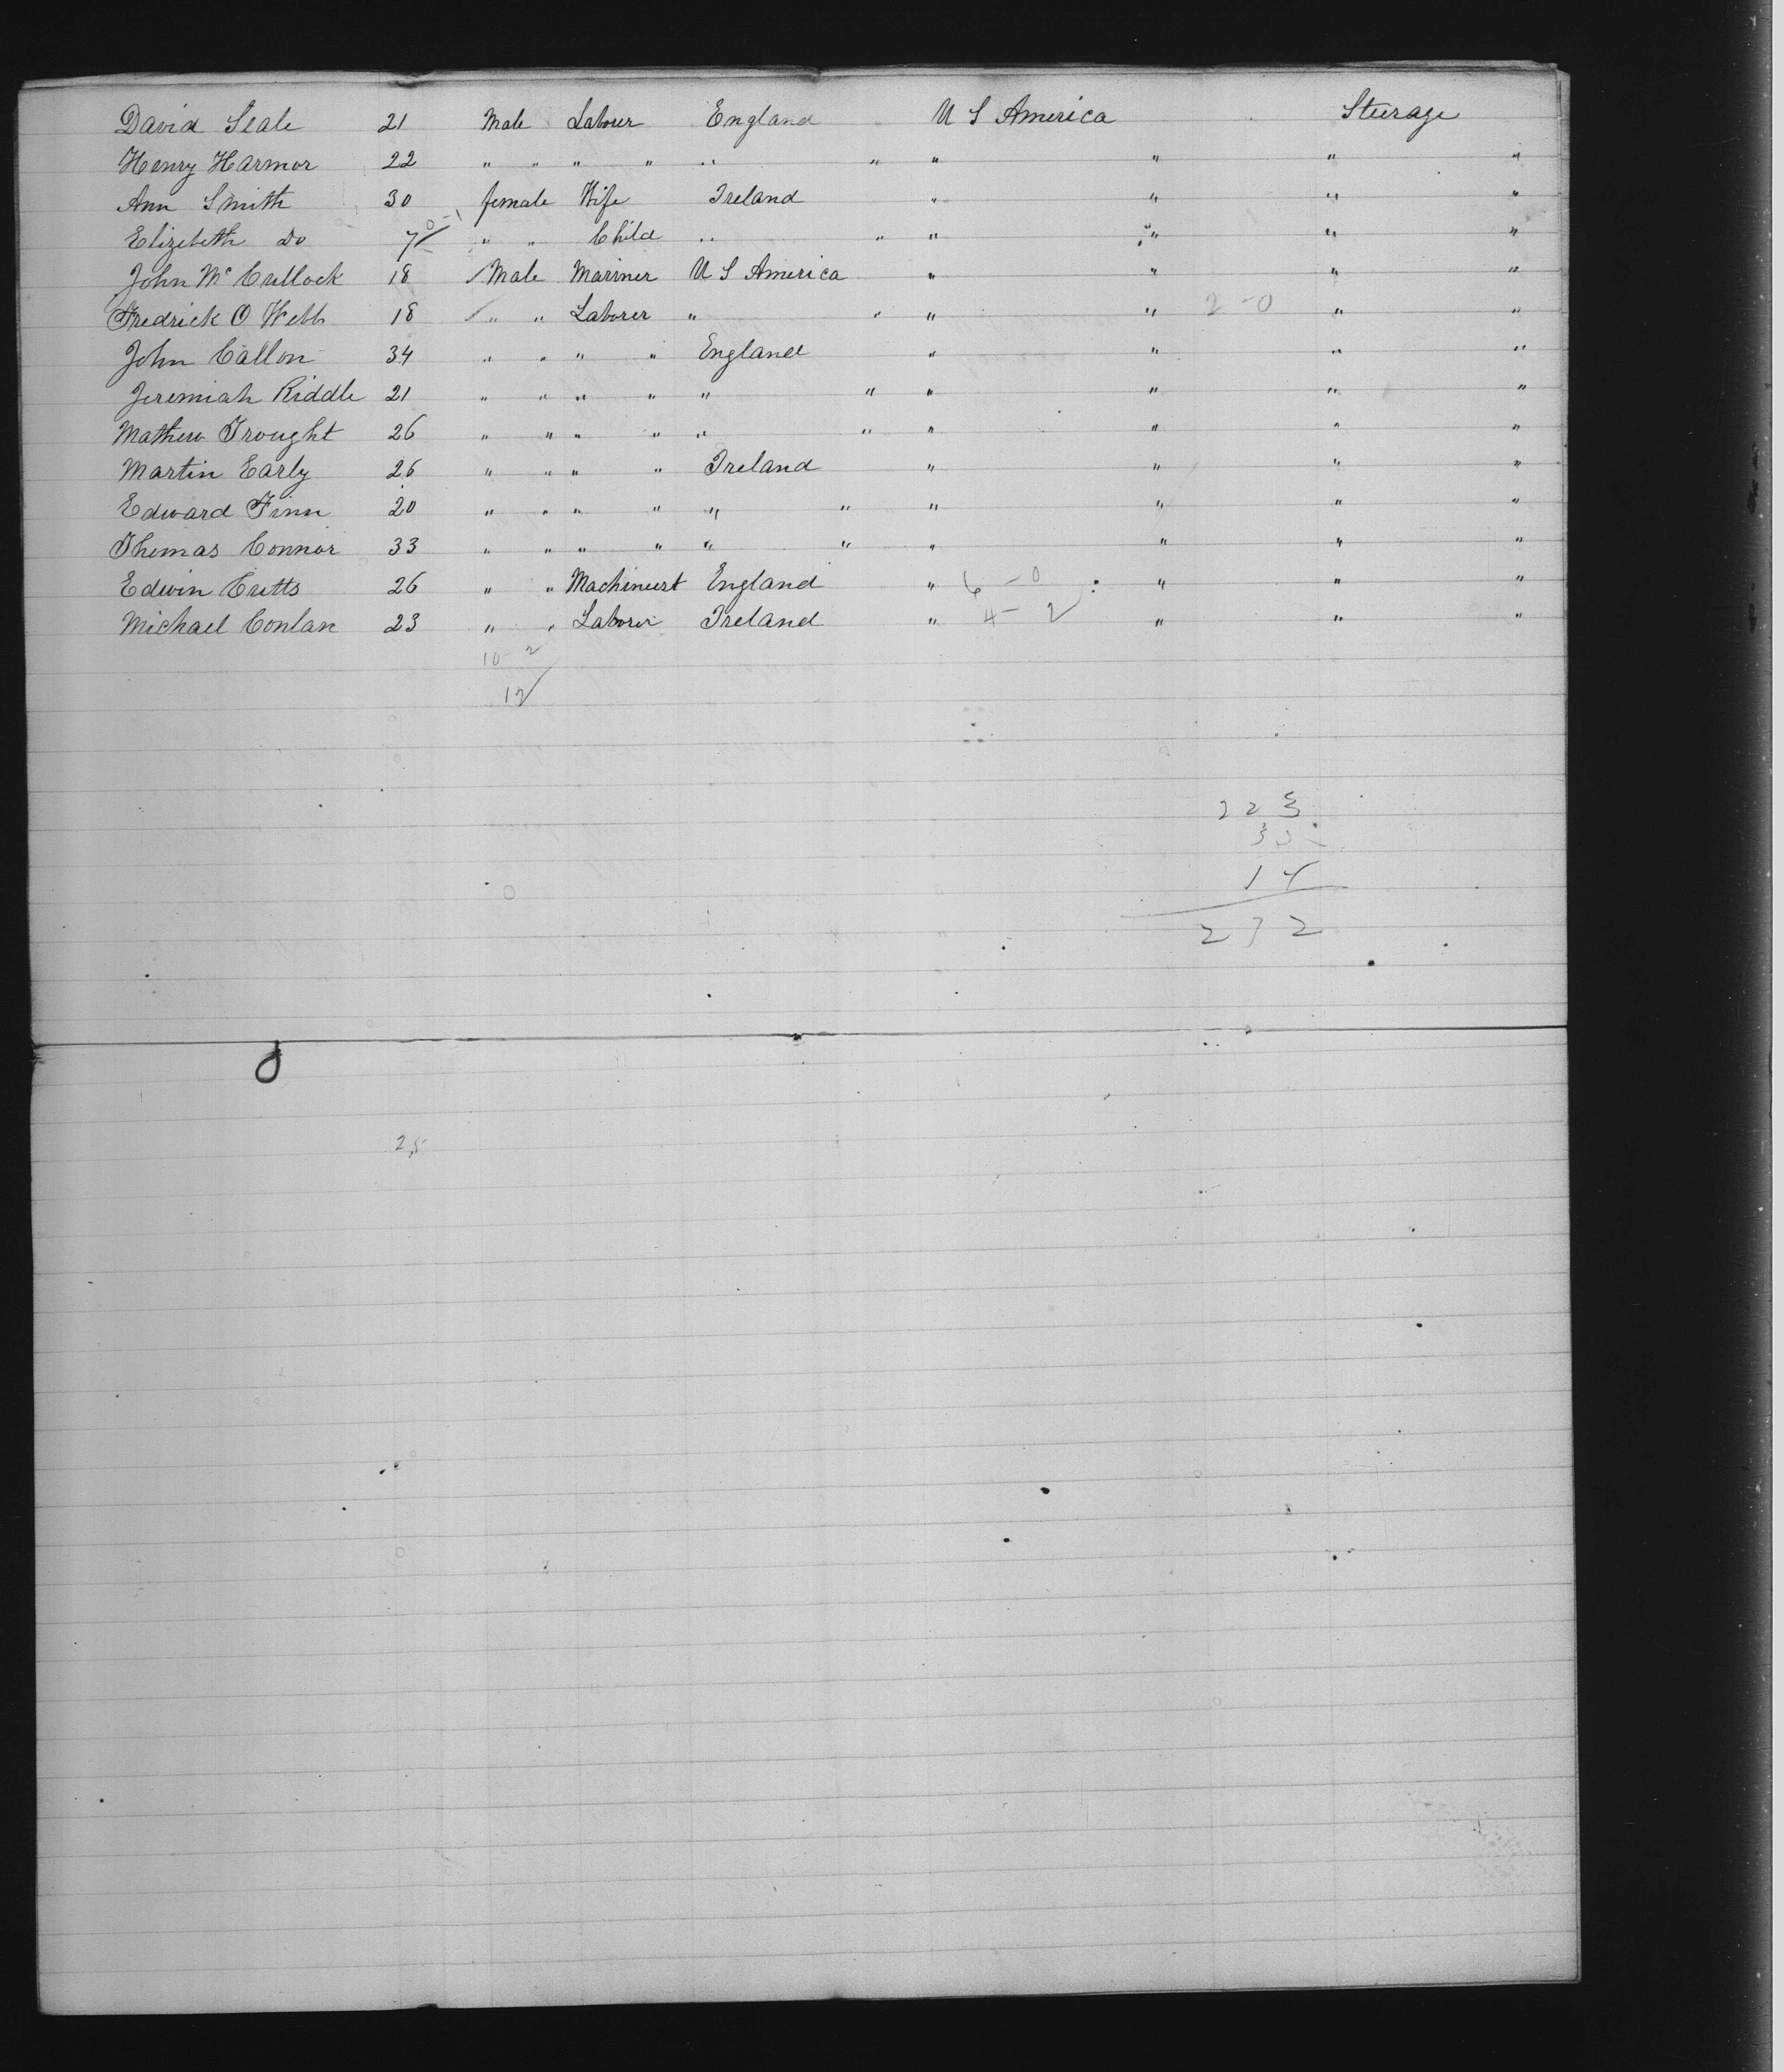 David Seale 21 Male Laborer England U S America Sturage
Henry Harmor 22 " " " " " " " " " "
Ann Smith 30 female Wife Ireland " " " "
Elizebeth Do 7 " " Child " " " " " "
John Mc Cullock 18 Male Mariner U S America " " " "
Fredrick O Webb 18 " " Laborer " " " " 2-0 " "
John Callon 34 " " " " England " " " "
Jeremiah Riddle 21 " " " " " " " " " "
Mathew Trought 26 " " " " " " " " " "
Martin Early 26 " " " " Ireland " " " "
Edward Finn 20 " " " " " " " " " "
Thomas Connor 33 " " " " " " " " " "
Edwin Cutts 26 " " Machineest England " 6-0 " " "
Michael Conlan 23 " " Laborer Ireland " 4-2 " " "
10-2
12
223
14
272
25